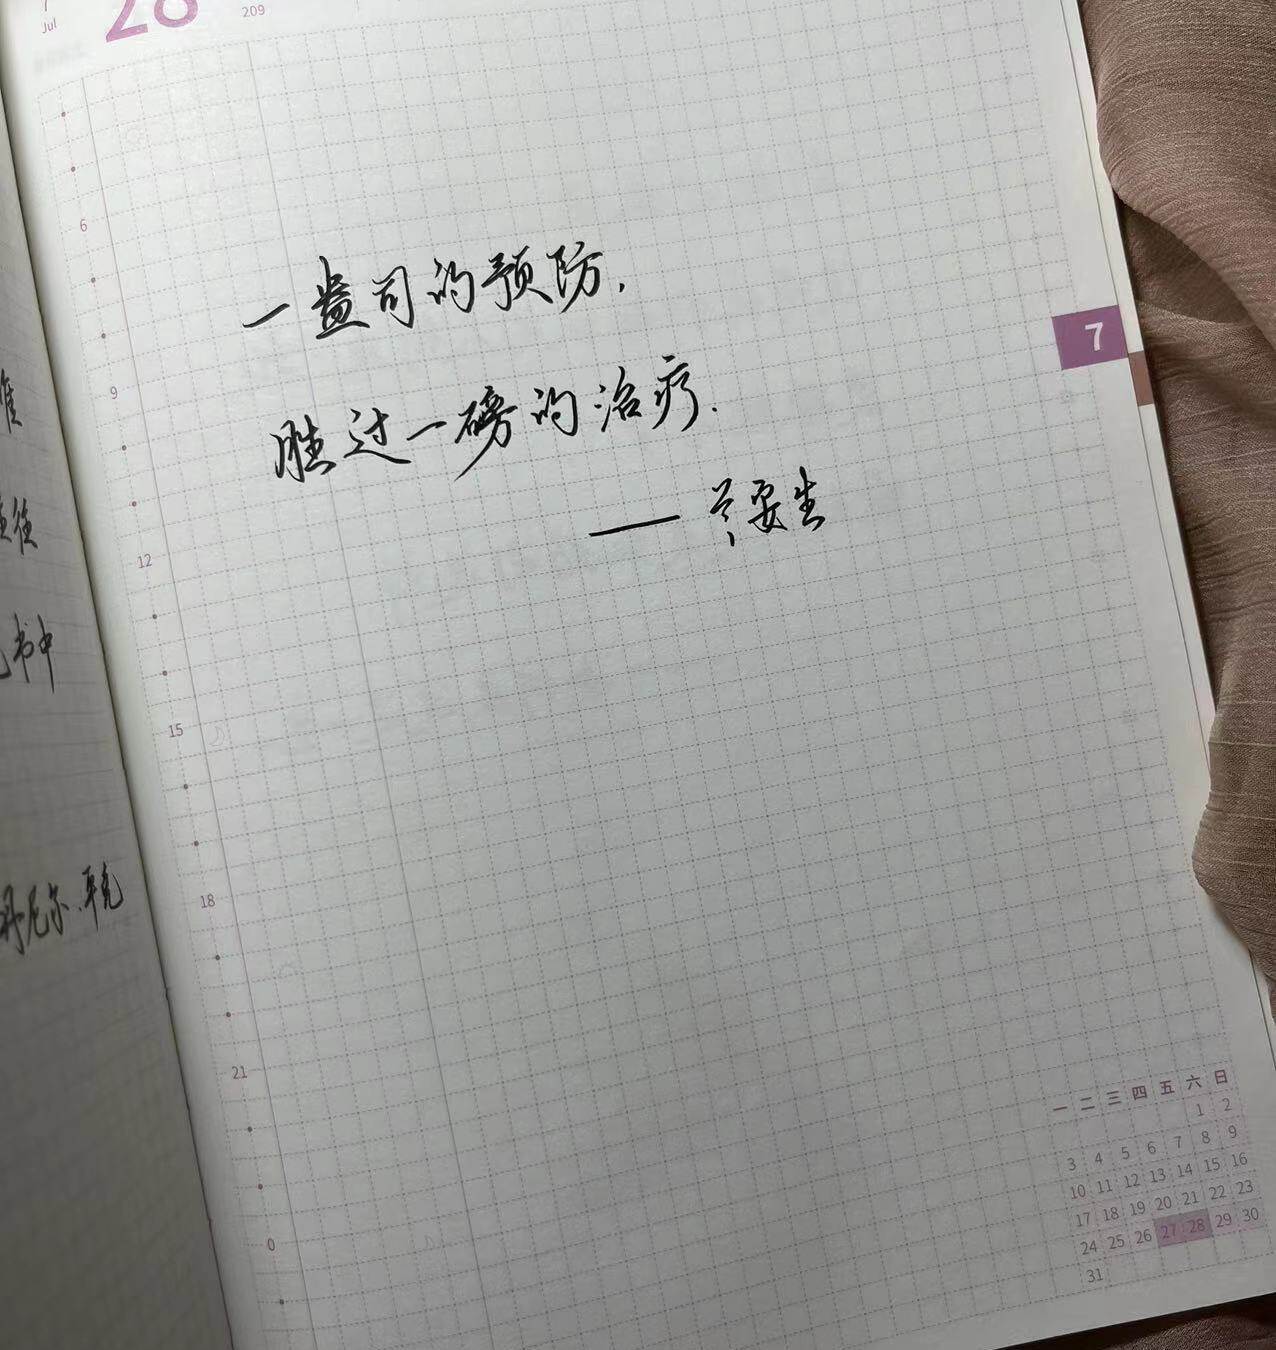 Jul
28
209
6
一盎司的预防，
7
9
胜过一磅的治疗.
12
准
书中
15
18
丹尼尔.平克
21
一 二 三 四 五 六 日
1 2
3 4 5 6 7 8 9
10 11 12 13 14 15 16
17 18 19 20 21 22 23
0
24 25 26 27 28 29 30
31